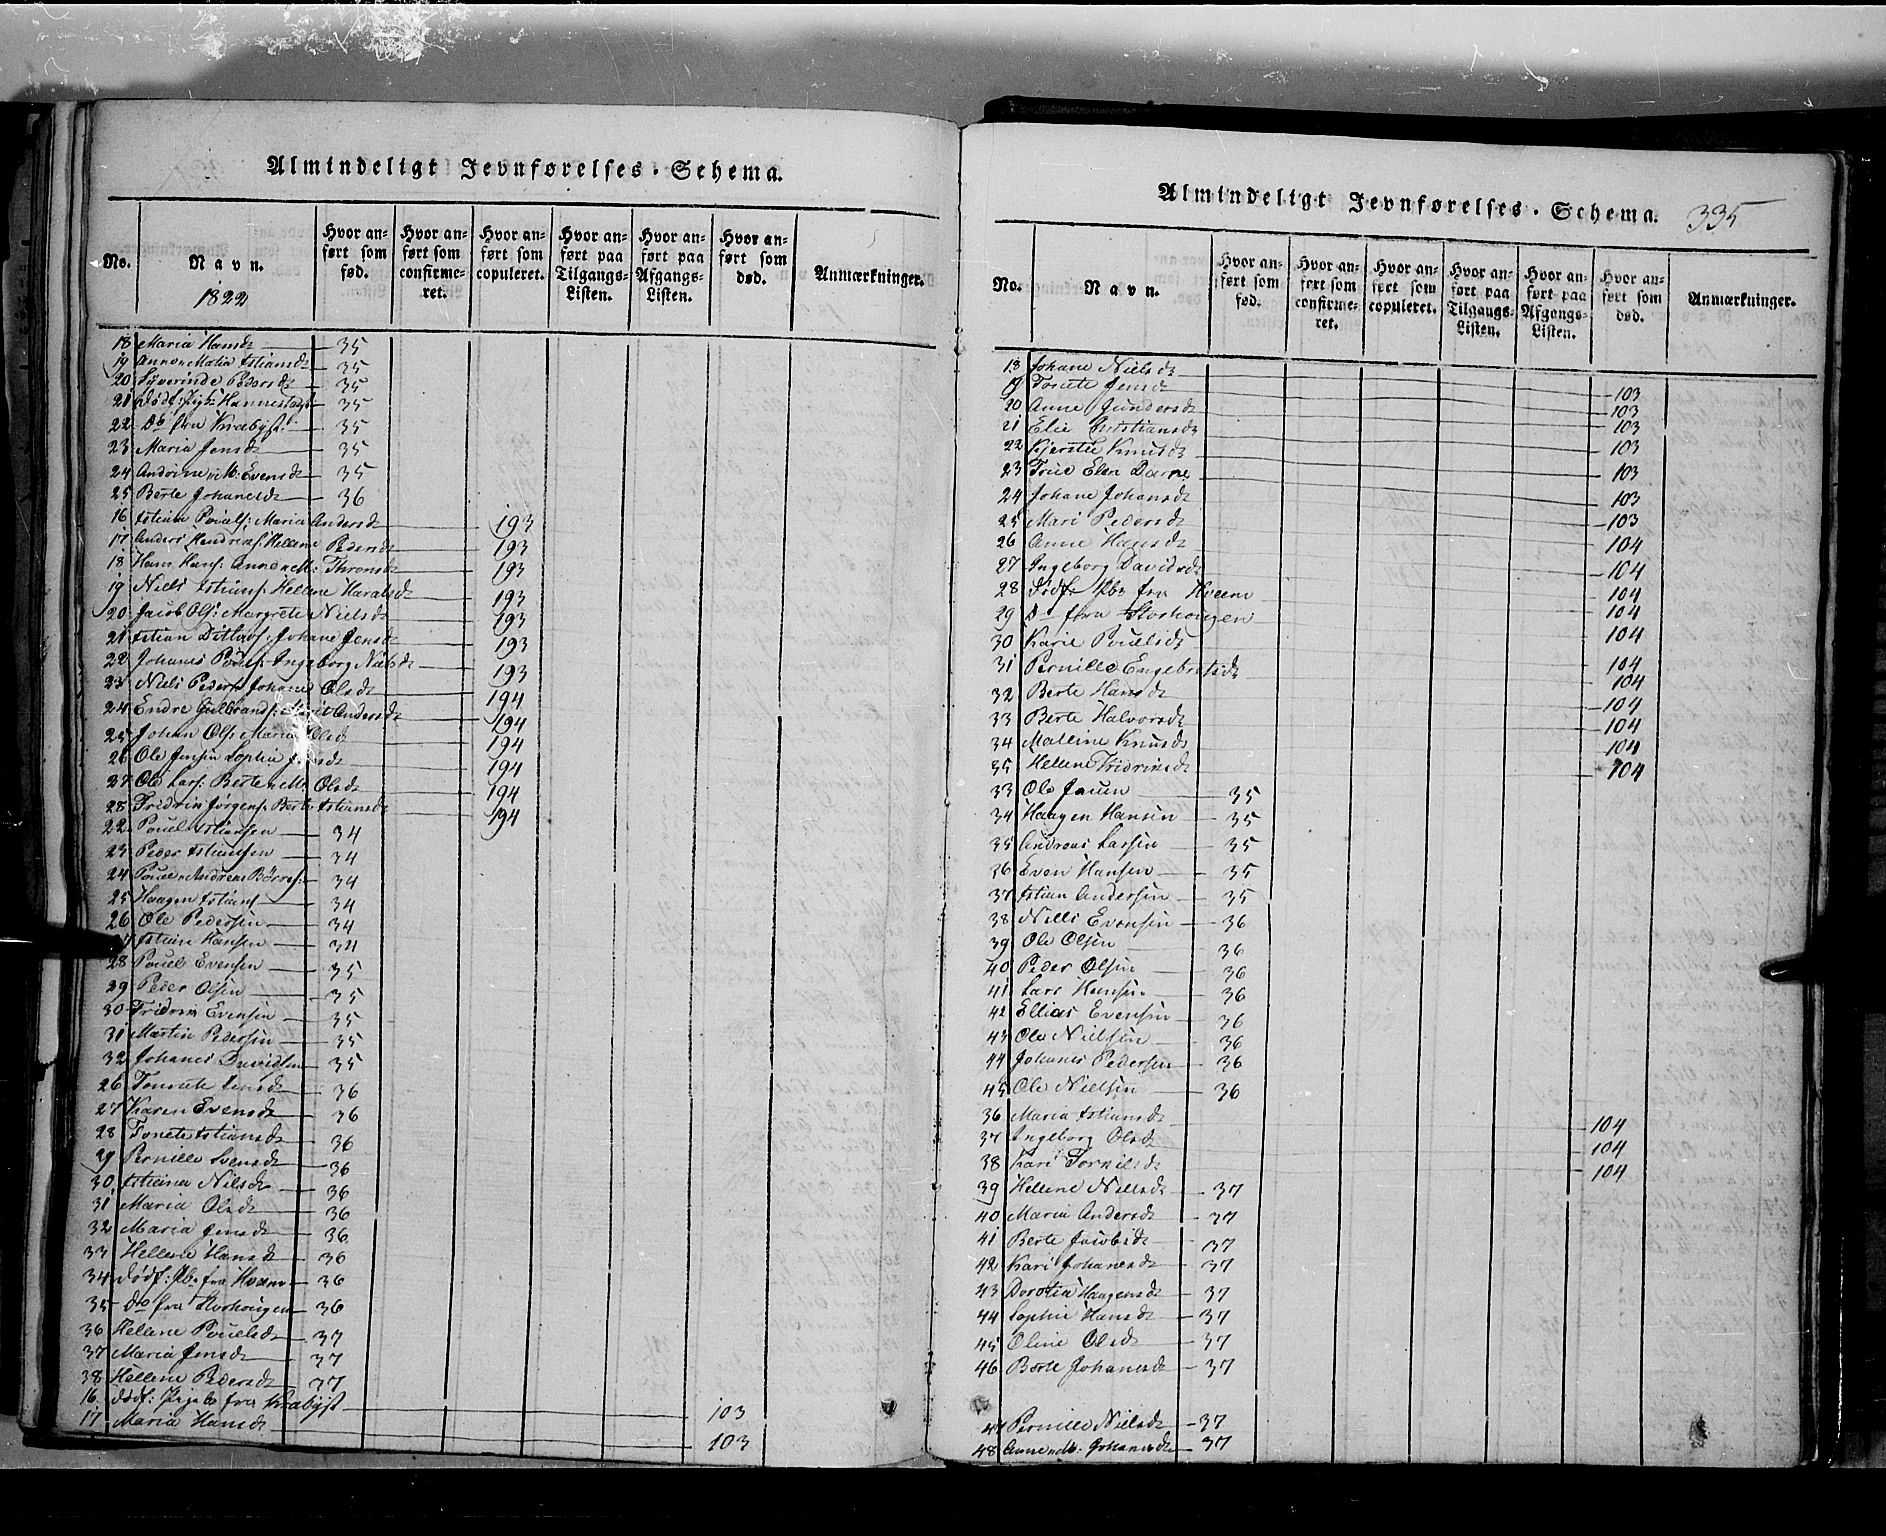 Almindeligt Jevnførelses-Schema.
No.
Navn.
1822
Hvor anført som fød.
Hvor anført som confirmeret.
Hvor anført som copuleret.
Hvor anført paa Tilgangs-Listen.
Hvor anført paa Afgangs-Listen.
Hvor anført som død.
Anmærkninger.
18 Maria Hansdr 35
19 35
20 Syverinde Pedersdr 35
21 35
22 Do fra Kræbÿst 35
23 Maria Jensdr 35
24 Andrine M: Evensdr 35
25 Berte Johanesdr 36
16 Maria Andersdr 193
17 Anders Hendrens: Hellene Pedersdr 193
18 Hans Hans: Anne M: Thronsdr 193
19 Niels Hellene Haralsdr 193
20 Jacob Ols: Margrete Nielsdr 193
21 Johane Jensdr 193
22 Johanes Pouls: Ingeborg Nielsdr 193
23 Niels Peders: Johane Olsdr 194
24 Endre Gulbrands: Marit Andersdr 194
25 Johan Ols: Maria Olsd 194
26 Ole Jensen Sophia 194
27 Ole Lars: Berte M: Olsdr 194
28 Jørgens: Berte 194
22 Pouel 34
23 Peder 34
24 Pouel Andreas Børres: 34
25 Haagen 34
26 Ole Pedersen 34
27 Hansen 34
28 Pouel Evensen 35
29 Peder Olsen 35
30 Evensen 35
31 Martin Pedersen 35
32 Johanes Davidsen 35
26 Jensdr 36
27 Karen Evensdr 36
28 Tonete 36
29 Pernille Svensdr 36
30 Nilsdr 36
31 Maria Olsdr 36
32 Maria Jensdr 36
33 Hellene Hansdr 36
34 Dødf: fra Hvam 36
35 Do fra Storhougen 36
36 Hellene Pouelsdr 37
37 Maria Jensdr 37
38 Hellene Pedersdr 37
16 Dødf: Pigeb fra Kræbÿst 103
17 Maria Hansdr 103
Almindeligt Jevnførelses-Schema.
335
No.
Navn.
Hvor anført som fød.
Hvor anført som confirmeret.
Hvor anført som copuleret.
Hvor anført paa Tilgangs-Listen.
Hvor anført paa Afgangs-Listen.
Hvor anført som død.
Anmærkninger.
18 Johane Nielsdr 103
19 Tonete Jensdr 103
20 Anne Gundersdr 103
21 Elie Cristiansdr 103
22 Kjerstie Knusdr 103
23 103
24 Johane Johansdr 103
25 Mari Pedersdr 104
26 Anne Hansdr 104
27 Ingeborg Davidsdr 104
28 Dødf: fra Hveem 104
29 Do fra Storhougen 104
30 Karie Pouelsdr 104
31 Pernille Engebretsdr 104
32 Berte Hansdr 104
33 Berte Halvorsdr 104
34 Malline Knusdr 104
35 Hellene 104
33 Ole 35
34 Haagen Hansen 35
35 Andreas Larsen 35
36 Even Hansen 35
37 Andersen 35
38 Niels Evensen 36
39 Ole Olsen 36
40 Peder Olsen 36
41 Lars Hansen 36
42 Ellias Evensen 36
43 Ole Nielsen 36
44 Johanes Pedersen 36
45 Ole Nielsen 36
36 Maria 104
37 Ingeborg Olsdr 104
38 Kari 104
39 Hellene Nielsdr 37
40 Maria Andersdr 37
41 Berte Jacobsdr 37
42 Kari Johanesdr 37
43 Dorotea Haagensdr 37
44 Sophie Hansdr 37
45 Oline Olsdr 37
46 Berte Johanesdr 37
47 Pernille Nielsdr 37
48 Anne M: Johansdr 37